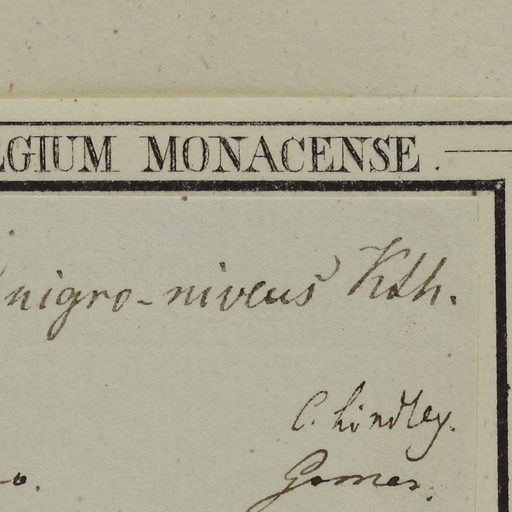 EGIUM MONACENSE.
nigro-niveus Kth.
C. Lindley.
o.
Gomez.